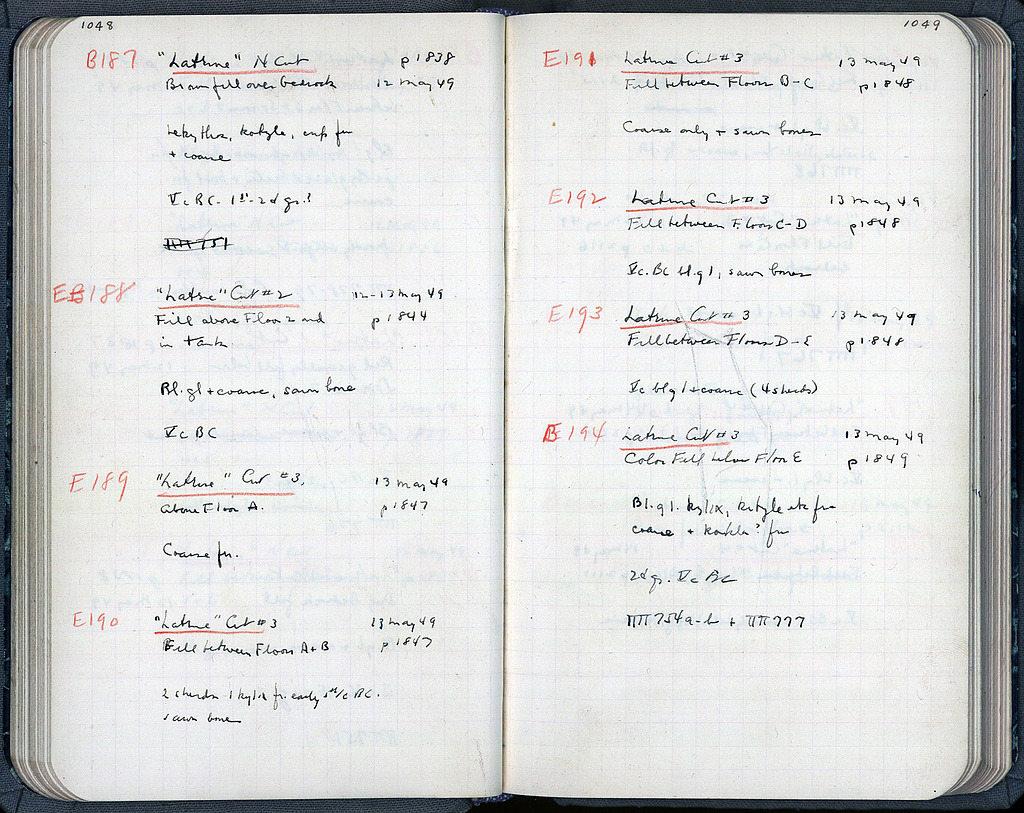 1048
B187 "Latrine" N Cut p 1838
Brown fill over bedrock 12 May 49
Lekythos, kotyle, cup fr
+ coarse
Vc BC - 1st-2d qr.?
ΠΠ 751
EB188 "Latrine" Cut #2 12-13 May 49
Fill above Floor 2 and p 1844
in tank.
Bl. gl + coarse, sawn bone
Vc BC
E189 "Latrine" Cut #3, 13 May 49
Above Floor A. p 1847
Coarse fr.
E190 "Latrine" Cut #3 13 May 49
Fill between Floors A+B p 1847
2 sherds 1 kylix fr. early 5th/c BC.
sawn bone
1049
E191 Latrine Cut #3 13 May 49
Fill between Floors B-C p 1848
Coarse only + sawn bones
E192 Latrine Cut #3 13 May 49
Fill between Floors C-D p 1848
Vc. BC bl. gl, sawn bones
E193 Latrine Cut #3 13 May 49
Fill between Floors D-E p 1848
Vc bl gl + coarse (4 sherds)
E194 Latrine Cut #3 13 May 49
Color Fill below Floor E p 1849
Bl. gl. kylix, kotyle etc fr
coarse + fr
2d qr. Vc BC
ΠΠ 754 a-b + ΠΠ 777